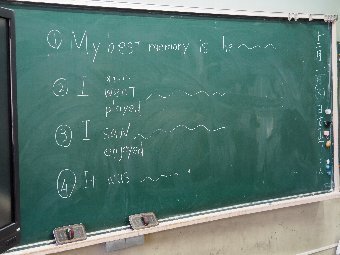 ① My best memory is the
② I
went
played
③ I saw
enjoyed
④ It was